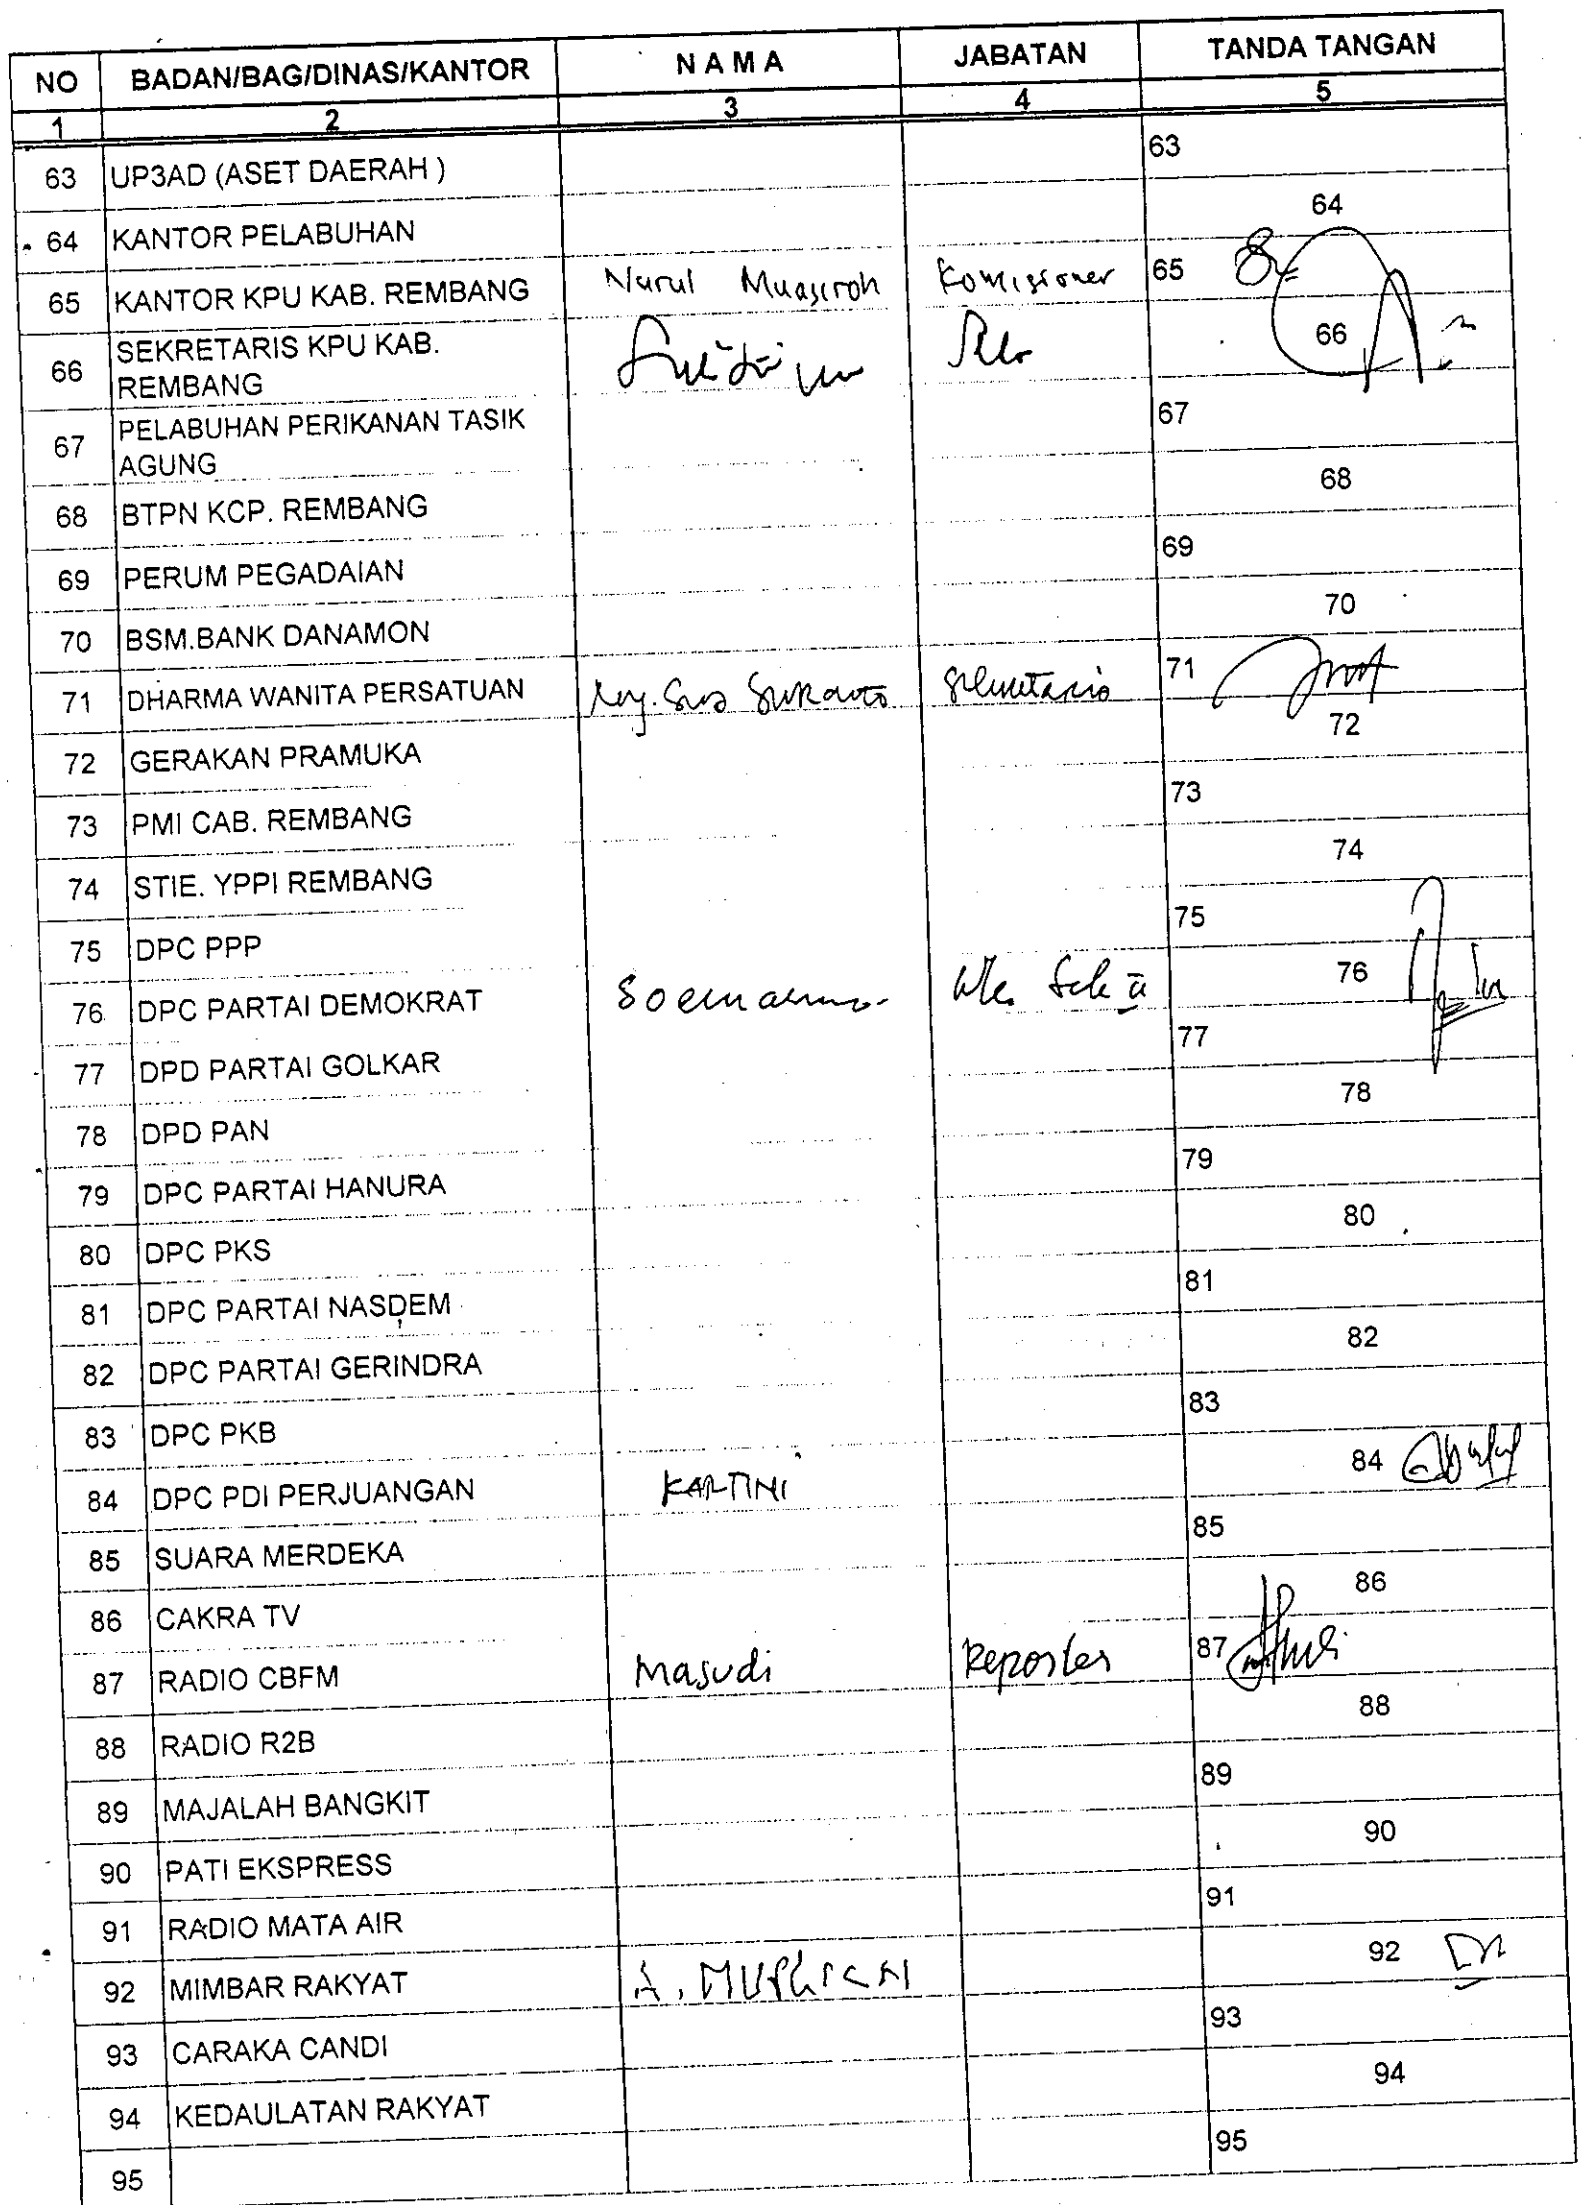 NO BADAN/BAG/DINAS/KANTOR N A M A JABATAN TANDA TANGAN
1 2 3 4 5
63 UP3AD (ASET DAERAH ) 63
64 KANTOR PELABUHAN 64
65 KANTOR KPU KAB. REMBANG Nurul Muasiroh Komisioner 65
66 SEKRETARIS KPU KAB. REMBANG 66
67 PELABUHAN PERIKANAN TASIK AGUNG 67
68 BTPN KCP. REMBANG 68
69 PERUM PEGADAIAN 69
70 BSM.BANK DANAMON 70
71 DHARMA WANITA PERSATUAN 71
72 GERAKAN PRAMUKA 72
73 PMI CAB. REMBANG 73
74 STIE. YPPI REMBANG 74
75 DPC PPP 75
76 DPC PARTAI DEMOKRAT 76
77 DPD PARTAI GOLKAR 77
78 DPD PAN 78
79 DPC PARTAI HANURA 79
80 DPC PKS 80
81 DPC PARTAI NASDEM 81
82 DPC PARTAI GERINDRA 82
83 DPC PKB 83
84 DPC PDI PERJUANGAN KARTINI 84
85 SUARA MERDEKA 85
86 CAKRA TV 86
87 RADIO CBFM Masudi Reporter 87
88 RADIO R2B 88
89 MAJALAH BANGKIT 89
90 PATI EKSPRESS 90
91 RADIO MATA AIR 91
92 MIMBAR RAKYAT 92
93 CARAKA CANDI 93
94 KEDAULATAN RAKYAT 94
95 95